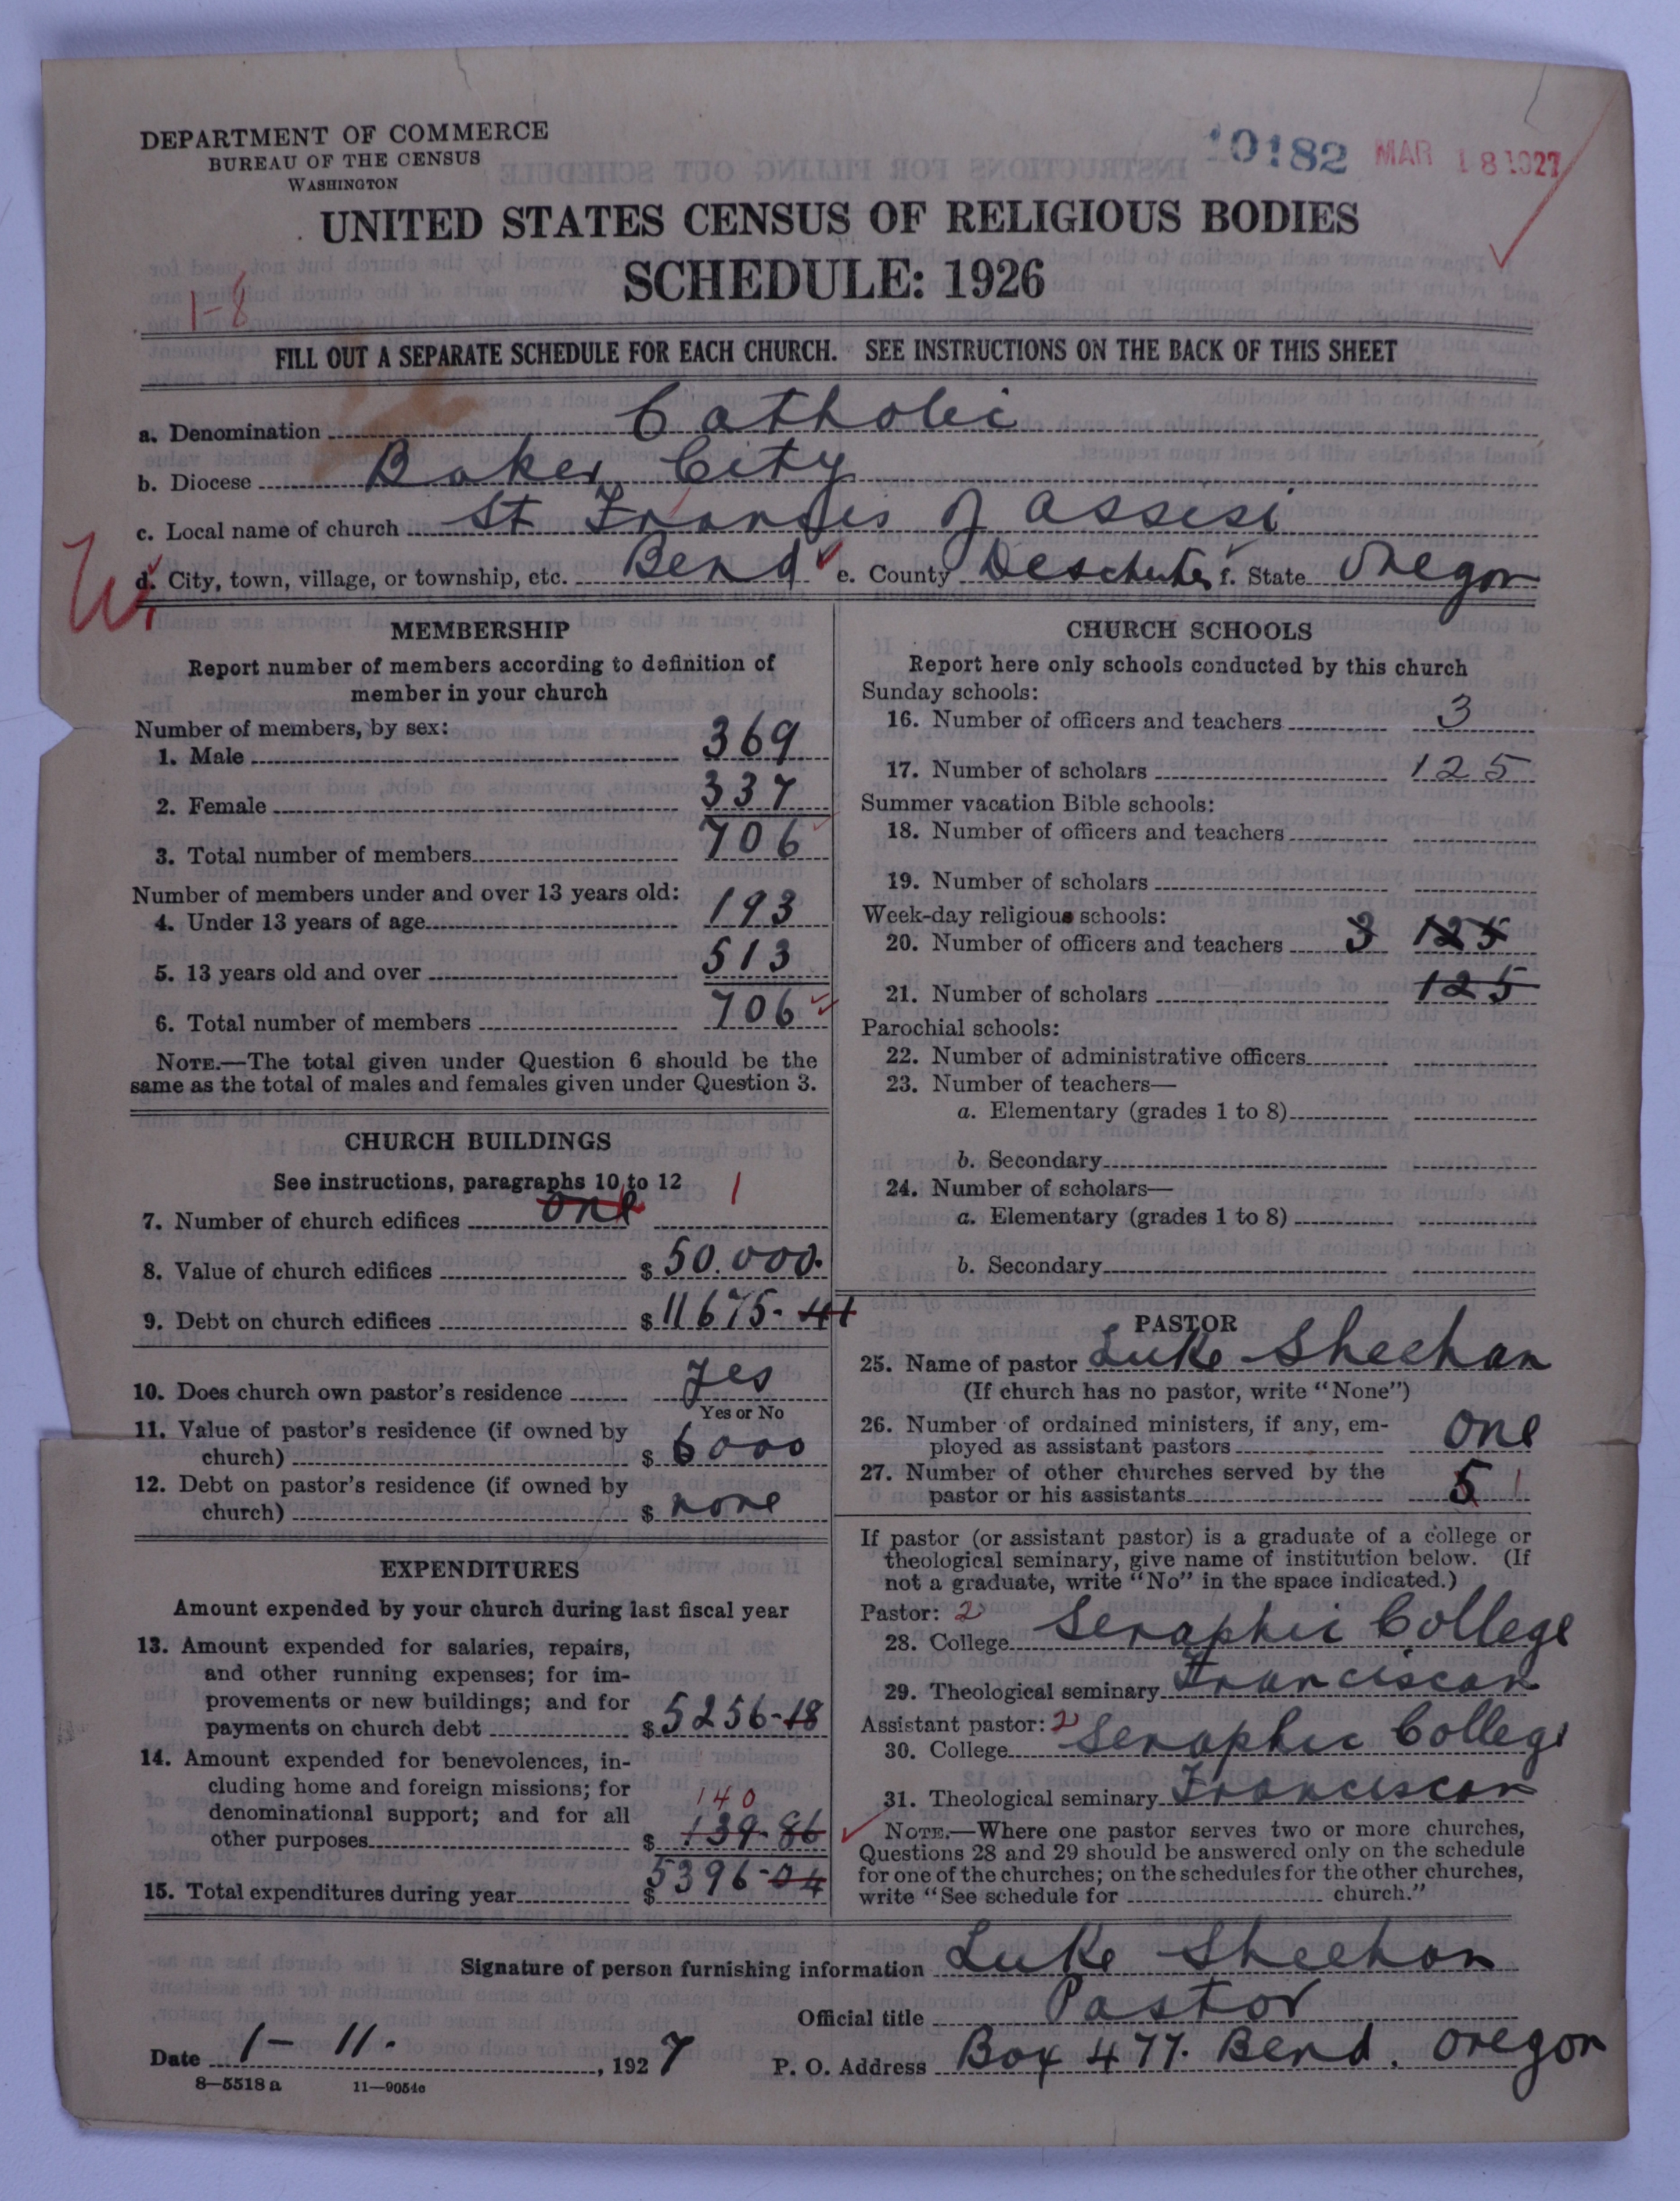 DEPARTMENT OF COMMERCE
BUREAU OF THE CENSUS
WASHINGTON
10182 MAR 18 1927
UNITED STATES CENSUS OF RELIGIOUS BODIES
SCHEDULE: 1926
1-8
FILL OUT A SEPARATE SCHEDULE FOR EACH CHURCH. SEE INSTRUCTIONS ON THE BACK OF THIS SHEET
a. Denomination Catholic
b. Diocese Baker City
c. Local name of church St Francis of Assisi
d. City, town, village, or township, etc. Bend e. County Deschutes f. State Oregon
MEMBERSHIP
Report number of members according to definition of
member in your church
Number of members, by sex:
1. Male 369
2. Female 337
3. Total number of members 706
Number of members under and over 13 years old:
4. Under 13 years of age 193
5. 13 years old and over 513
6. Total number of members 706
NOTE.—The total given under Question 6 should be the
same as the total of males and females given under Question 3.
CHURCH BUILDINGS
See instructions, paragraphs 10 to 12
7. Number of church edifices one 1
8. Value of church edifices $ 50.000.
9. Debt on church edifices $ 11675-41
10. Does church own pastor's residence yes
Yes or No
11. Value of pastor's residence (if owned by
church) $ 6000
12. Debt on pastor's residence (if owned by
church) $ none
EXPENDITURES
Amount expended by your church during last fiscal year
13. Amount expended for salaries, repairs,
and other running expenses; for im-
provements or new buildings; and for
payments on church debt $ 5256-18
14. Amount expended for benevolences, in-
cluding home and foreign missions; for
denominational support; and for all 140
other purposes $ 139-86
15. Total expenditures during year $ 5396-04
CHURCH SCHOOLS
Report here only schools conducted by this church
Sunday schools:
16. Number of officers and teachers 3
17. Number of scholars 125
Summer vacation Bible schools:
18. Number of officers and teachers
19. Number of scholars
Week-day religious schools:
20. Number of officers and teachers 3 125
21. Number of scholars 125
Parochial schools:
22. Number of administrative officers
23. Number of teachers—
a. Elementary (grades 1 to 8)
b. Secondary
24. Number of scholars—
a. Elementary (grades 1 to 8)
b. Secondary
PASTOR
25. Name of pastor Luke Sheehan
(If church has no pastor, write "None")
26. Number of ordained ministers, if any, em-
ployed as assistant pastors one
27. Number of other churches served by the
pastor or his assistants 5 1
If pastor (or assistant pastor) is a graduate of a college or
theological seminary, give name of institution below. (If
not a graduate, write "No" in the space indicated.)
Pastor: 2
28. College Seraphic College
29. Theological seminary Franciscan
Assistant pastor: 2
30. College Seraphic College
31. Theological seminary Franciscan
NOTE.—Where one pastor serves two or more churches,
Questions 28 and 29 should be answered only on the schedule
for one of the churches; on the schedules for the other churches,
write "See schedule for church."
Signature of person furnishing information Luke Sheehan
Official title Pastor
Date 1-11. , 1927 P. O. Address Box 477. Bend. Oregon
8—5518 a 11—9054c